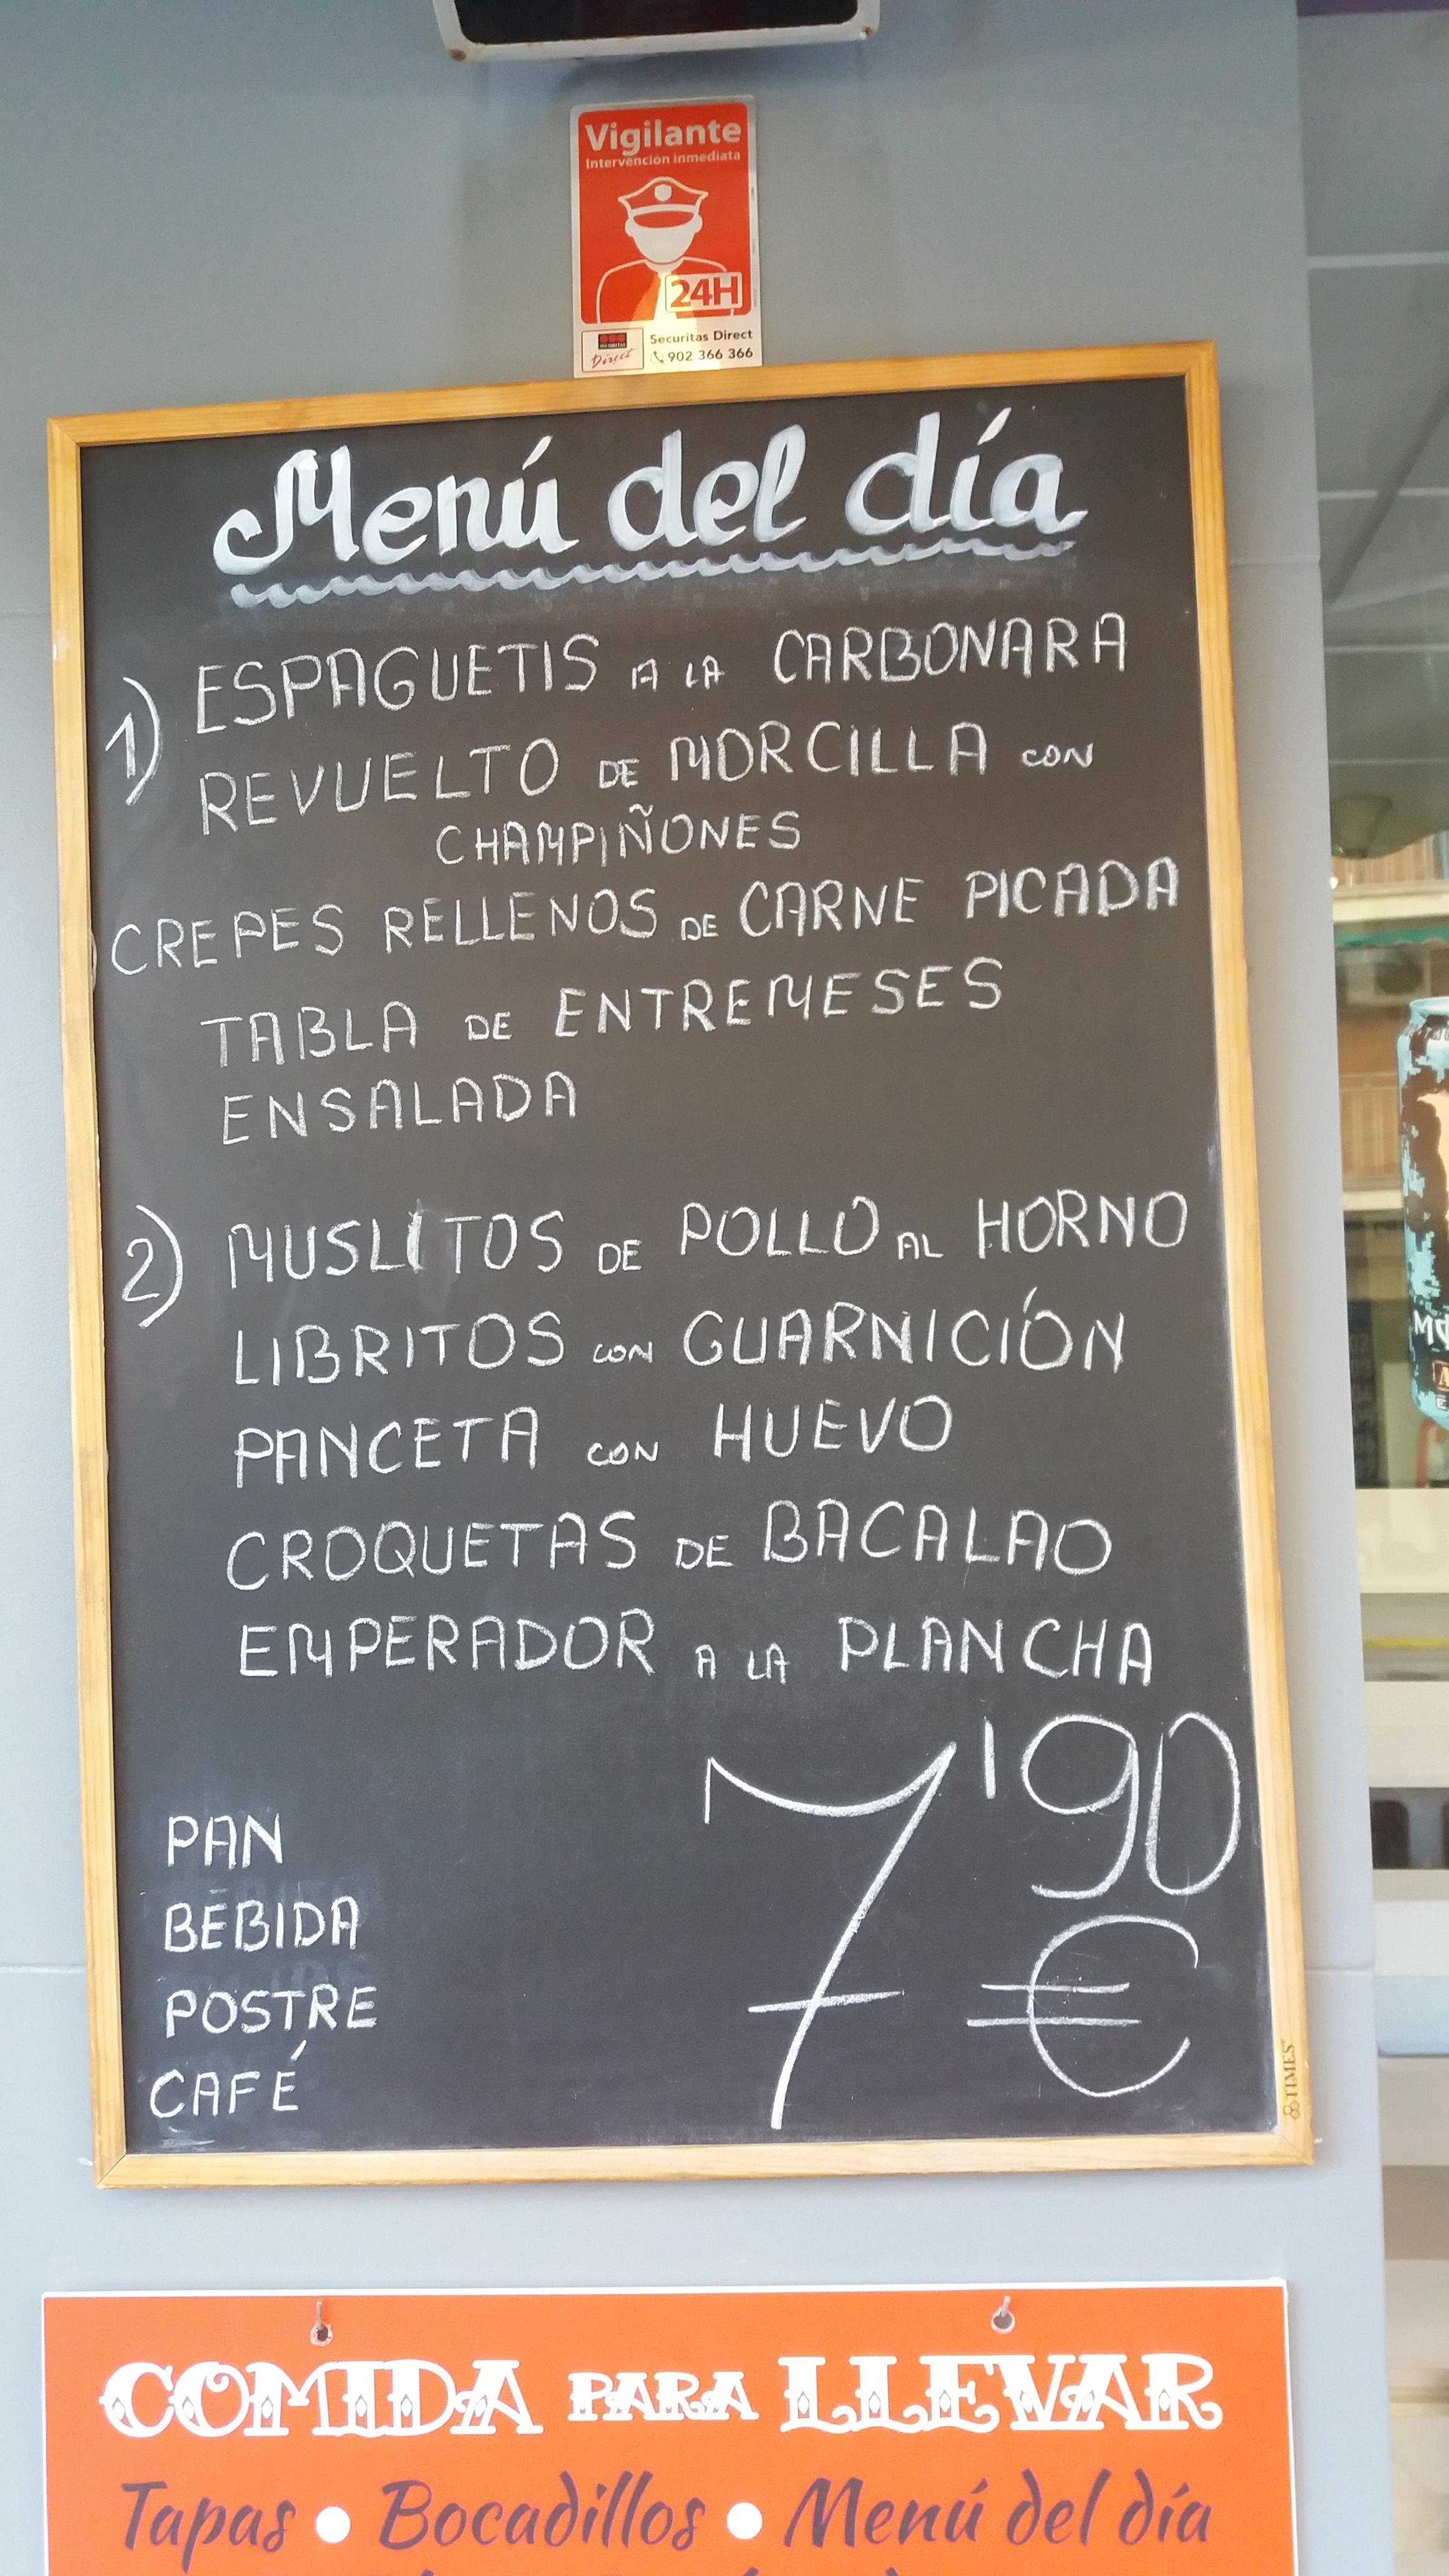 Vigilante
Intervención inmediata
24H
Securitas Direct
Direct
902 366 366
Menú del día
1) ESPAGUETIS A LA CARBONARA
REVUELTO DE MORCILLA CON
CHAMPIÑONES
CREPES RELLENOS DE CARNE PICADA
TABLA DE ENTREMESES
ENSALADA
2) MUSLITOS DE POLLO AL HORNO
LIBRITOS CON GUARNICIÓN
PANCETA CON HUEVO
CROQUETAS DE BACALAO
EMPERADOR A LA PLANCHA
7'90
€
PAN
BEBIDA
POSTRE
CAFÉ
TIMES
COMIDA PARA LLEVAR
Tapas • Bocadillos • Menú del día